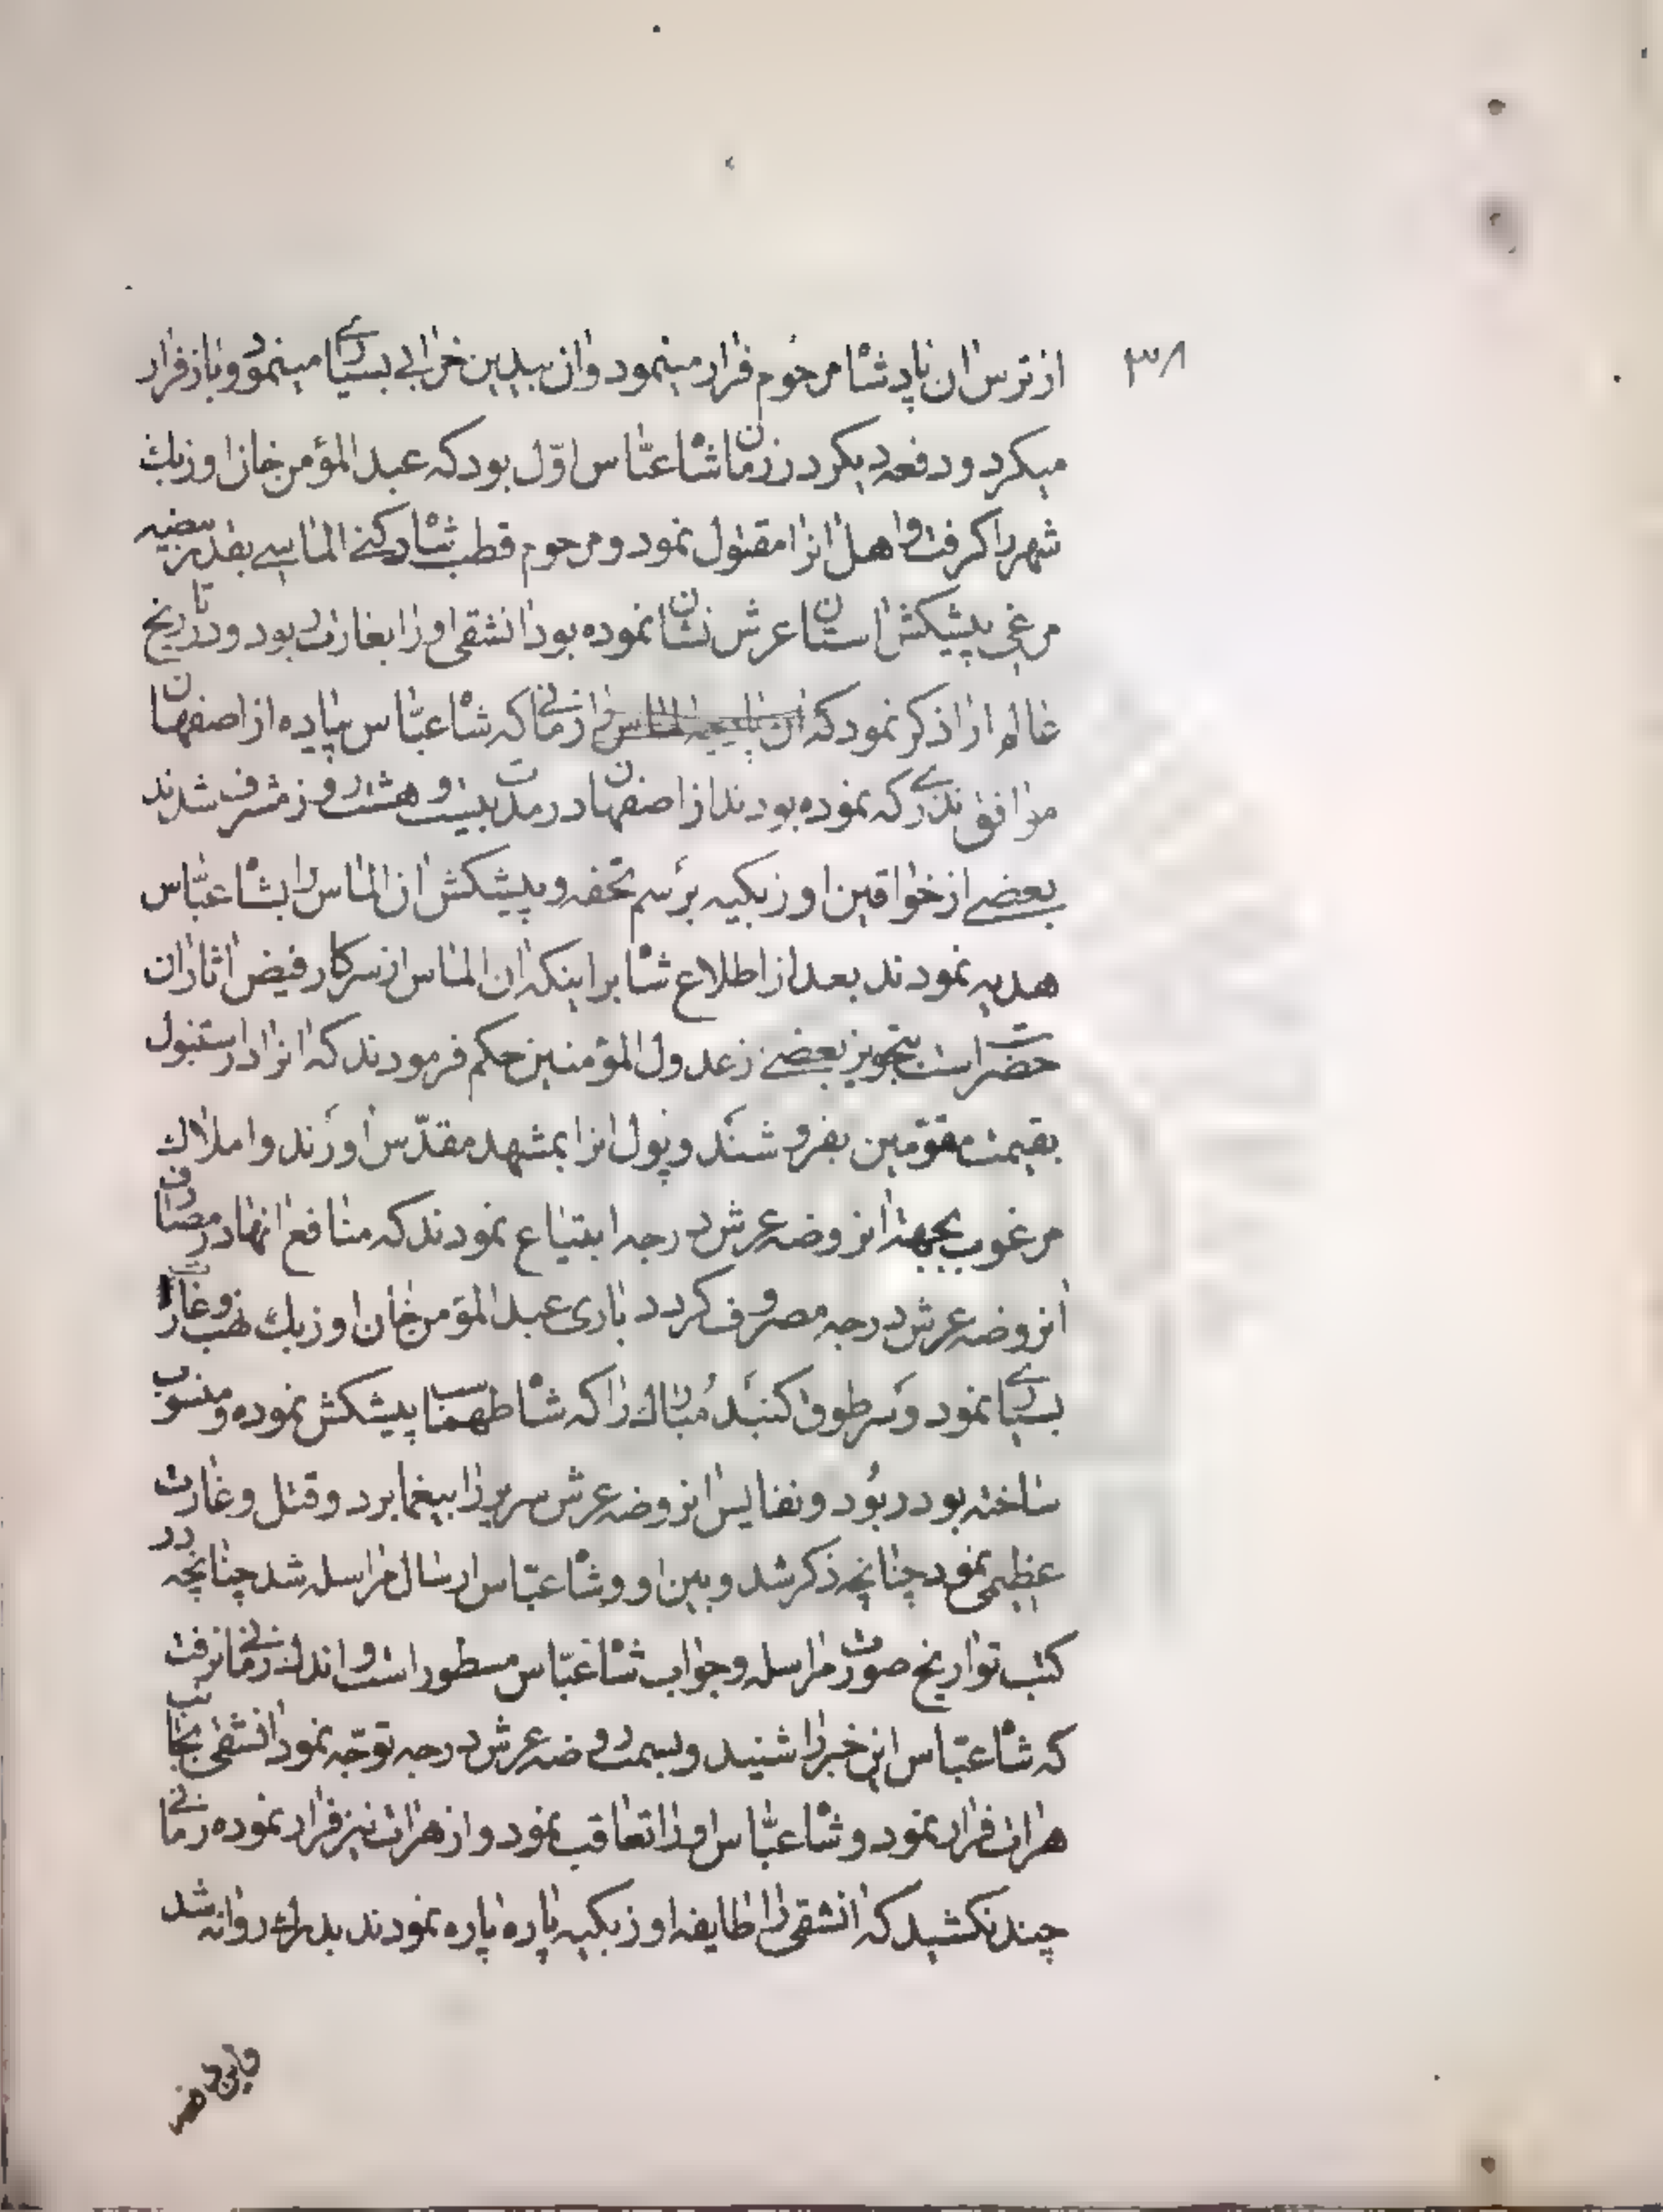 ۳۸
از ترس ان پادشاه مرحوم فرار مینمود و ان بیدین خرابی بسیاری مینمود و باز فرار
میکرد و دفعه دیکر در زمان شاه عباس اوّل بود که عبد المؤمن خان اوزبك
شهر را کرفت و اهل انرا مقتول نمود و مرحوم قطب شاه دکنی الماسی بقدر بیضه
مرغی پیشکش استان عرش نشان نموده بود انشقی او را بغارت ربود و در تاریخ
عالم ارا ذکر نمود که ان الماس را زمانی که شاه عبّاس پیاده از اصفهان
موافق نذری که نموده بودند از اصفهان در مدت بیست و هشت روز مشرف شدند
بعضی از خواقین اوزبکیه برسم تحفه و پیشکش ان الماس را بشاه عبّاس
هدیه نمودند بعد از اطلاع شاه بر اینکه ان الماس از سرکار فیض اثار ان
حضرت است بتجویز بعضی ز عدول المؤمنین حکم فرمودند که انرا در استنبول
بقیمت مقوّمین بفروشند و پول انرا بمشهد مقدّس اورند و املاك
مرغوب بجهة انروضه عرش درجه ابتیاع نمودند که منافع انها در مصارف
انروضه عرش درجه مصروف کردد باری عبد المؤمن خان اوزبك نهب و غارت
بسیاری نمود و سر طوق کنبد مُبارك را که شاه طهماسب پیشکش نموده و منسوب
ساخته بود ربُود و نفایس انروضه عرش سریر را بیغما برد و قتل و غارت
عظیمی نمود چنانچه ذکر شد و بین او و شاه عبّاس ارسال مراسله شد چنانچه در
کتب تواریخ صورت مراسله و جواب شاه عبّاس مسطور است و اندك زمانی نرفت
که شاه عبّاس این خبر را شنید و بسمت روضه عرش درجه توجّه نمود انشقی بجانب
هرات فرار نمود و شاه عبّاس او را تعاقب نمود و از هرات نیز فرار نموده زمانی
چند نکشید که انشقی را طایفه اوزبکیه پاره پاره نمودند بدرك روانه شد